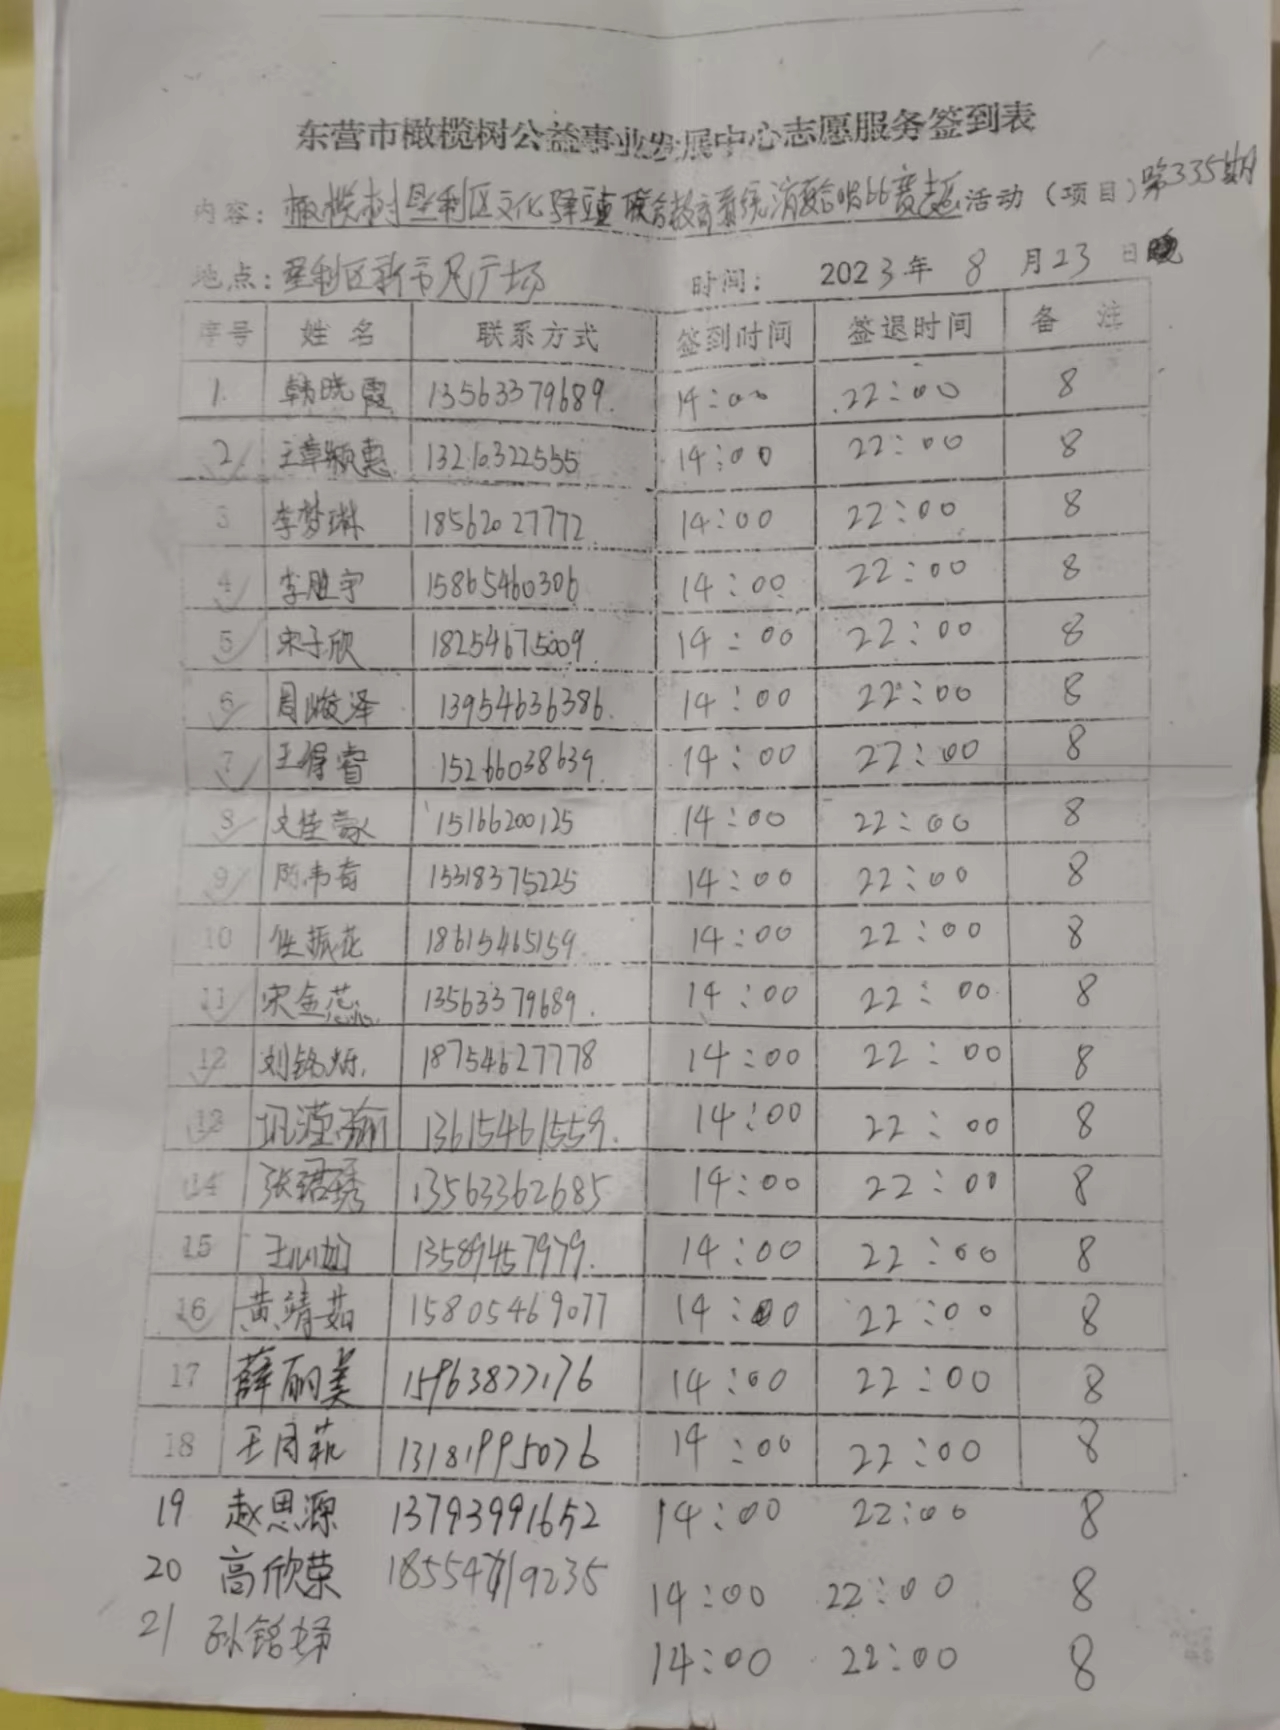 东营市橄榄树公益事业发展中心志愿服务签到表
内容：橄榄树垦利区文化驿站联合教育系统消夏合唱比赛活动（项目）第335期
地点：垦利区新市民广场 时间：2023年8月23日晚
序号 姓名 联系方式 签到时间 签退时间 备注
1 韩晓霞 13563379689. 14:00 22:00 8
2 王章颖惠 13210322555 14:00 22:00 8
3 李梦琳 18562027772 14:00 22:00 8
4 李胜宇 15865460306 14:00 22:00 8
5 宋子欣 18254675009. 14:00 22:00 8
6 周峻泽 13954636386. 14:00 22:00 8
7 王得睿 15266038639. 14:00 22:00 8
8 文佳 15166200125 14:00 22:00 8
9 陈韦 15318375225 14:00 22:00 8
10 任振花 18615465159. 14:00 22:00 8
11 宋金蕊 13563379689. 14:00 22:00 8
12 刘铭烁. 18754627778 14:00 22:00 8
13 巩瑾瑜 13615461559. 14:00 22:00 8
14 张珺琇 13563362685 14:00 22:00 8
15 王心如 13589457979. 14:00 22:00 8
16 黄靖茹 15805469077 14:00 22:00 8
17 薛丽美 15963877176 14:00 22:00 8
18 王月 13181995076 14:00 22:00 8
19 赵思源 13793991652 14:00 22:00 8
20 高欣荣 14:00 22:00 8
21 孙铭 14:00 22:00 8